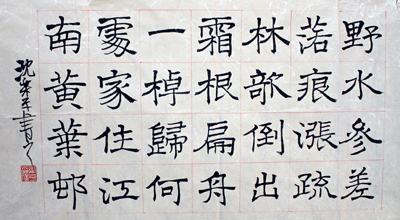 野水參差
落痕漲疏
林欹倒出
霜根扁舟
一棹歸何
處家住江
南黃葉邨